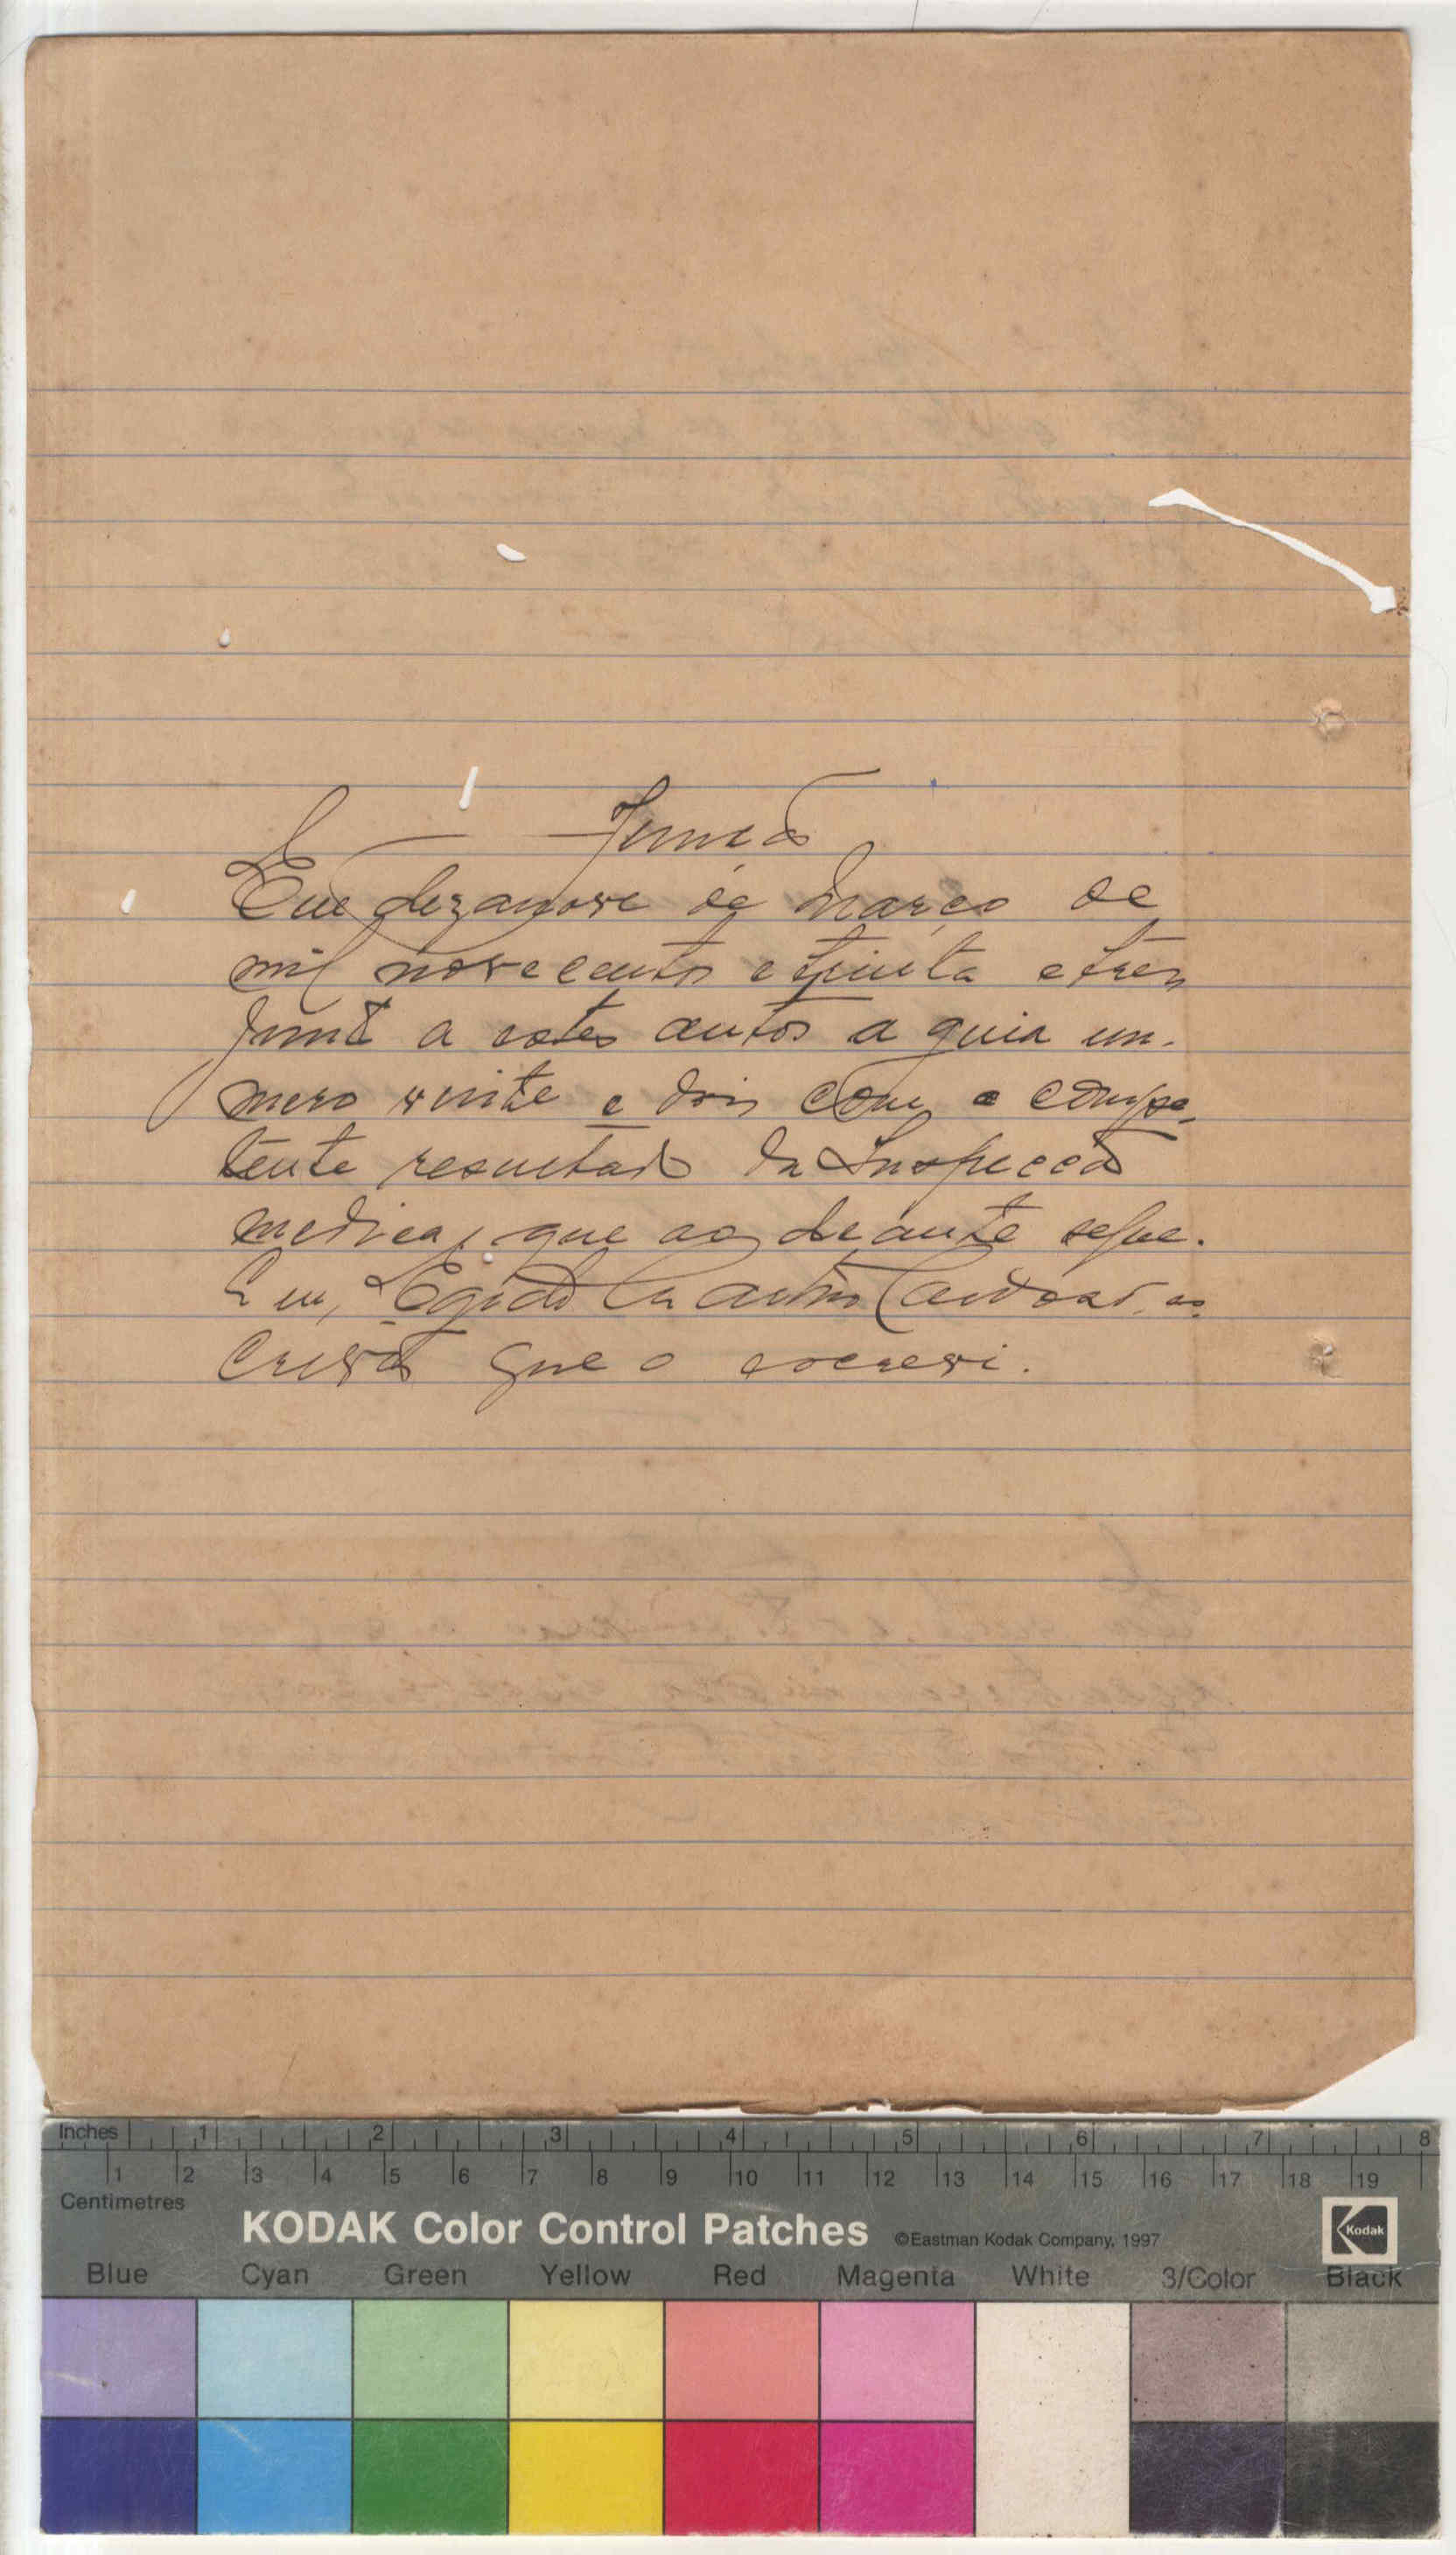 Juncção
Em dezanove de Março de
mil novecentos e trinta e tres
junto a estes autos a guia nu-
mero vinte e dois com o compe-
tente resultado da Inspecção
medica, que ao deante segue.
Eu, Egidio Castro Cardoso, es
crivão que o escrevi.
Inches 1 2 3 4 5 6 7 8
1 2 3 4 5 6 7 8 9 10 11 12 13 14 15 16 17 18 19
Centimetres
KODAK Color Control Patches ©Eastman Kodak Company, 1997 Kodak
Blue Cyan Green Yellow Red Magenta White 3/Color Black